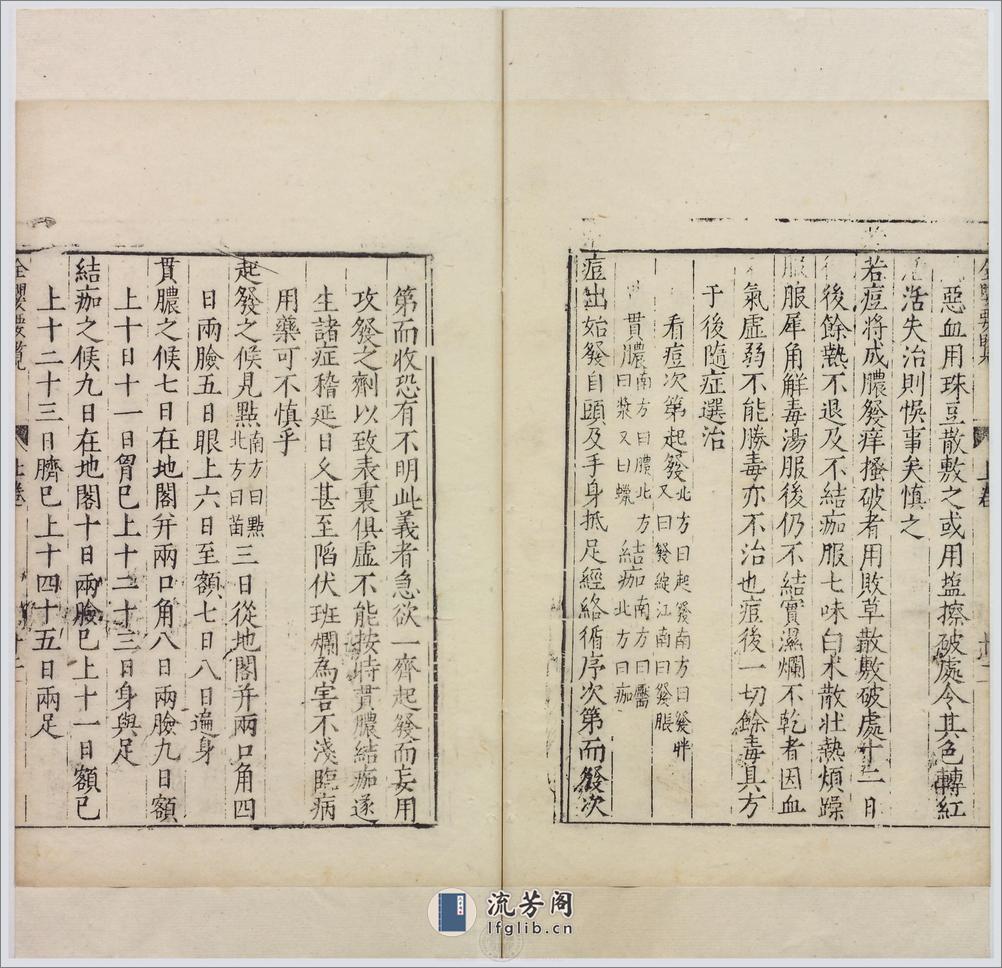 惡血用珠豆散敷之或用塩擦破處令其色轉紅
活失治則悮事矣慎之
若痘將成膿發痒搔破者用敗草散敷破處十二日
後餘熱不退及不結痂服七味白朮散壯熱煩躁
服犀角解毒湯服後仍不結實濕爛不乾者因血
氣虛弱不能勝毒亦不治也痘後一切餘毒具方
于後隨症選治
看痘次第起發北方曰起發南方曰發胖又曰發綻江南曰發脹
貫膿南方曰膿北方曰漿又曰蠟 結痂南方曰靨北方曰痂
痘出始發自頭及手身抵足經絡循序次第而發次
第而收恐有不明此義者急欲一齊起發而妄用
攻發之劑以致表裏俱虛不能按時貫膿結痂遂
生諸症稽延日久甚至陷伏班爛為害不淺臨病
用藥可不慎乎
起發之候見點南方曰點北方曰苗三日從地閣并兩口角四
日兩臉五日眼上六日至額七日八日遍身
貫膿之候七日在地閣并兩口角八日兩臉九日額
上十日十一日胷已上十二十三日身與足
結痂之候九日在地閣十日兩臉已上十一日額已
上十二十三日臍已上十四十五日兩足
上卷
流芳阁
lfglib.cn